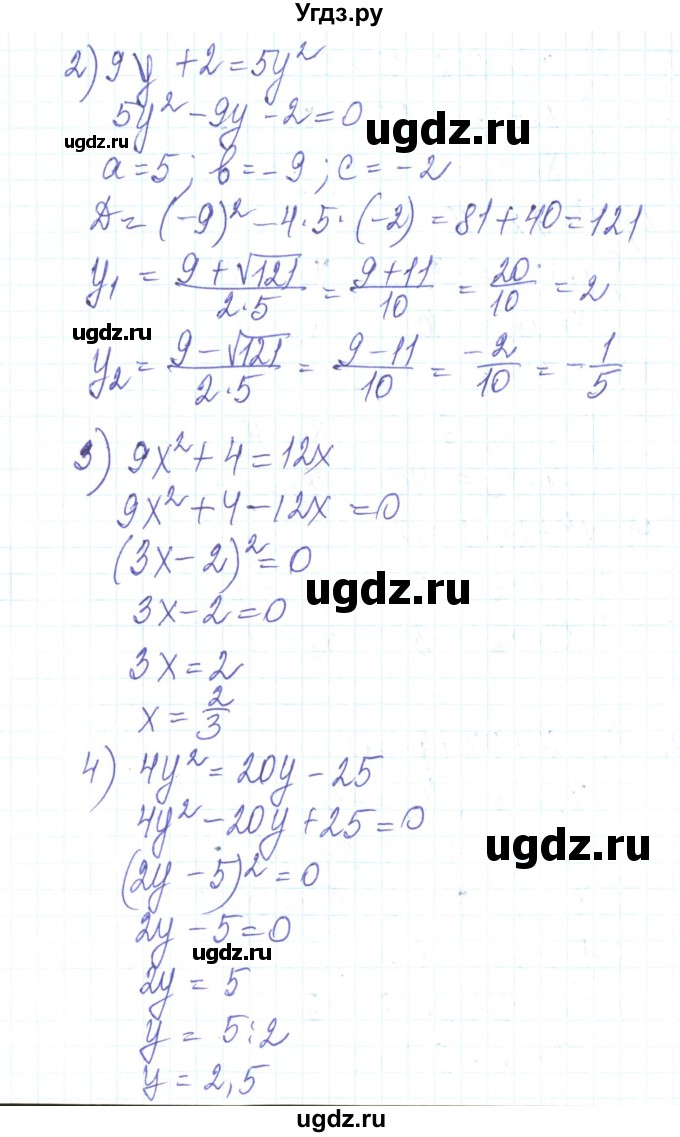 Угдз.ру
2) 9y + 2 = 5y²
5y² - 9y - 2 = 0
ugdz.ru
ugdz.ru
a = 5; в = -9; c = -2
D = (-9)² - 4·5·(-2) = 81 + 40 = 121
y₁ = (9 + √121)/(2·5) = (9 + 11)/10 = 20/10 = 2
ugdz.ru
y₂ = (9 - √121)/(2·5) = (9 - 11)/10 = -2/10 = -1/5
3) 9x² + 4 = 12x
9x² + 4 - 12x = 0
(3x - 2)² = 0
ugdz.ru
3x - 2 = 0
3x = 2
x = 2/3
4) 4y² = 20y - 25
4y² - 20y + 25 = 0
ugdz.ru
(2y - 5)² = 0
2y - 5 = 0
ugdz.ru
2y = 5
y = 5:2
y = 2,5
ugdz.ru